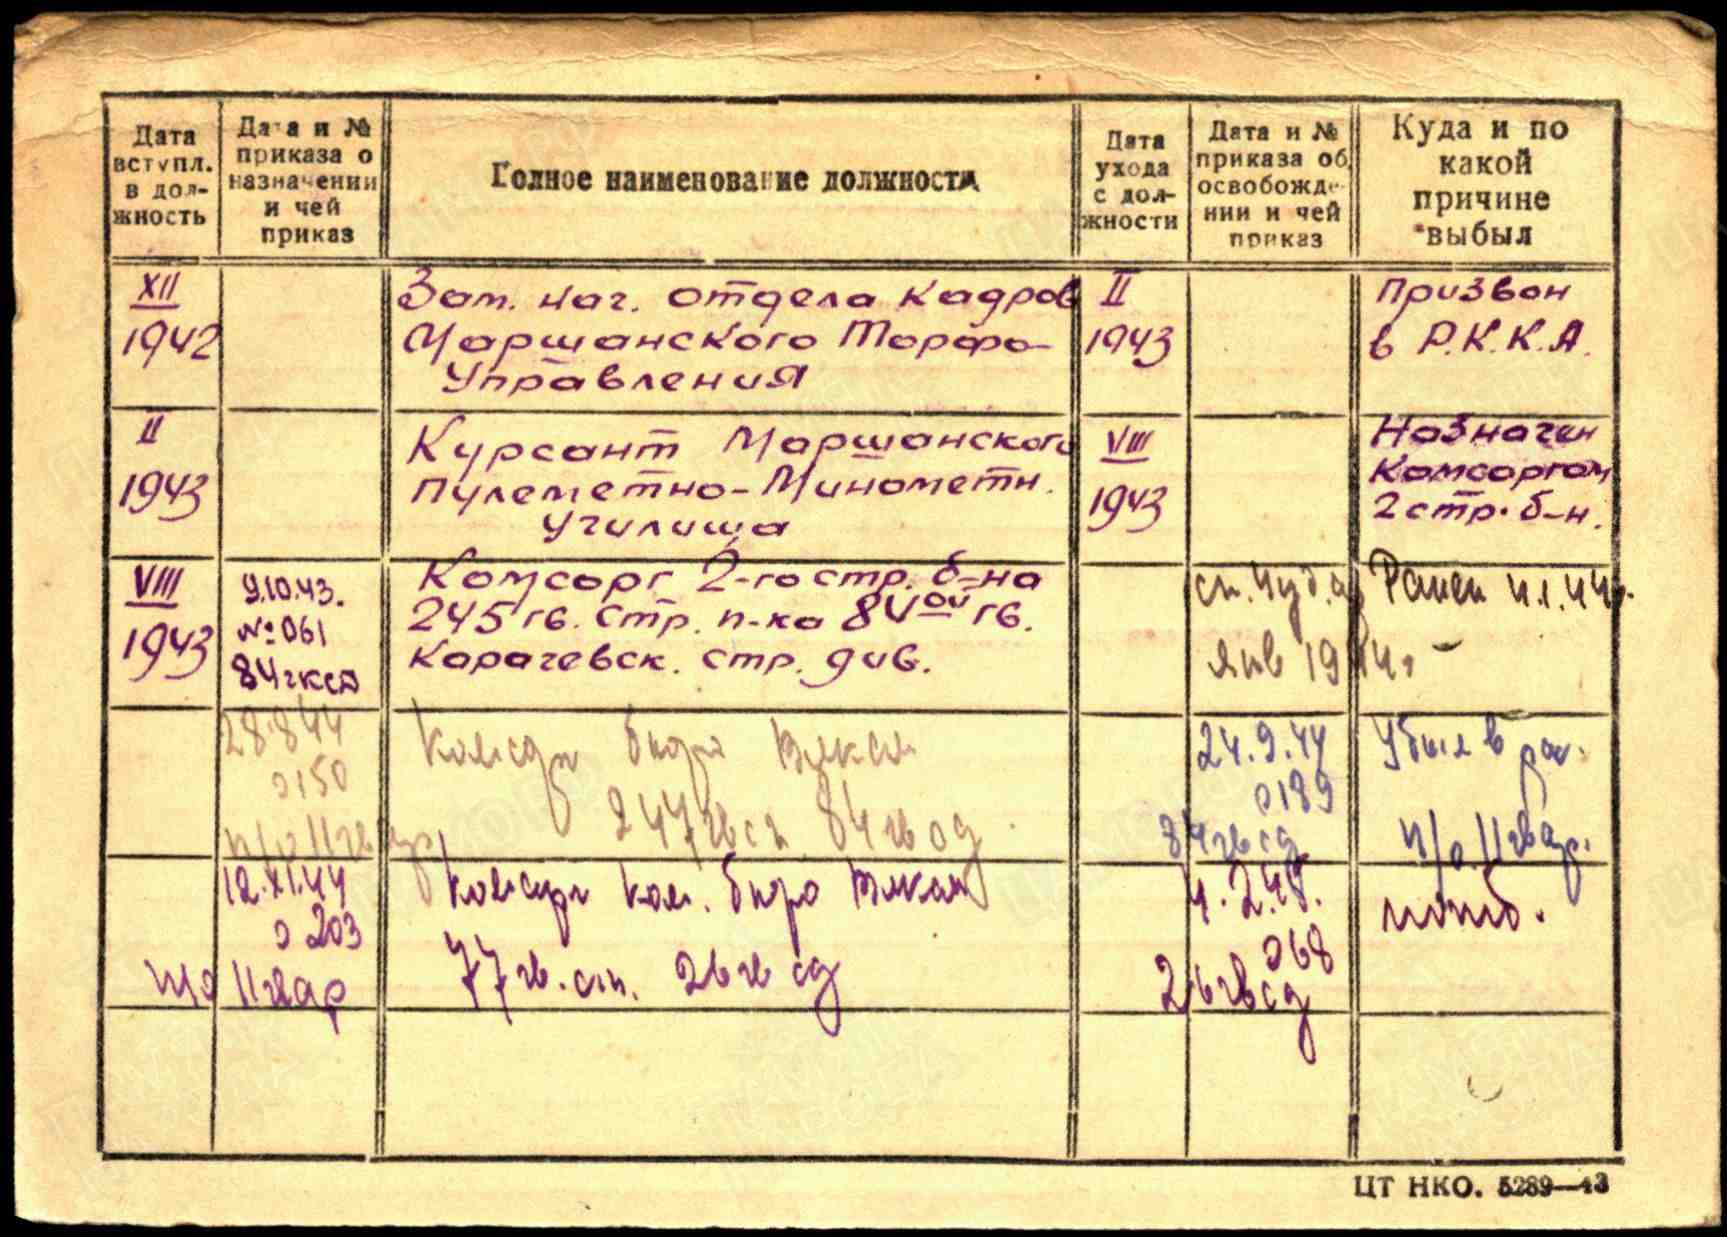 Дата вступл. в дол-жность
Дата и № приказа о назначении и чей приказ
Полное наименование должности
Дата ухода с дол-жности
Дата и № приказа об освобожде-нии и чей приказ
Куда и по какой причине выбыл
XII
1942
Зам. нач. отдела кадров
Моршанского Торфо-
Управления
II
1943
Призван
в Р.К.К.А.
II
1943
Курсант Моршанского
Пулеметно-Минометн.
Училища
VIII
1943
Назначен
Комсоргом
2 стр. б-н.
VIII
1943
9.10.43.
№ 061
84 гксд
Комсорг 2-го стр. б-на
245 гв. стр. п-ка 84ой гв.
Карачевск. стр. див.
янв 1944г
Ранен
28.8.44
0150
п/о 11 гвар
Комсорг бюро ВЛКСМ
247 гв сп 84 гв сд
24.9.44
0189
84 гв сд
Убыл в рас.
п/о 11 гвар.
12.XI.44
0203
п/о 11 гвар
Комсорг ком. бюро ВЛКСМ
77 гв. сп. 26 гв сд
4.2.45.
068
26 гв сд
погиб.
ЦТ НКО. 5289—43